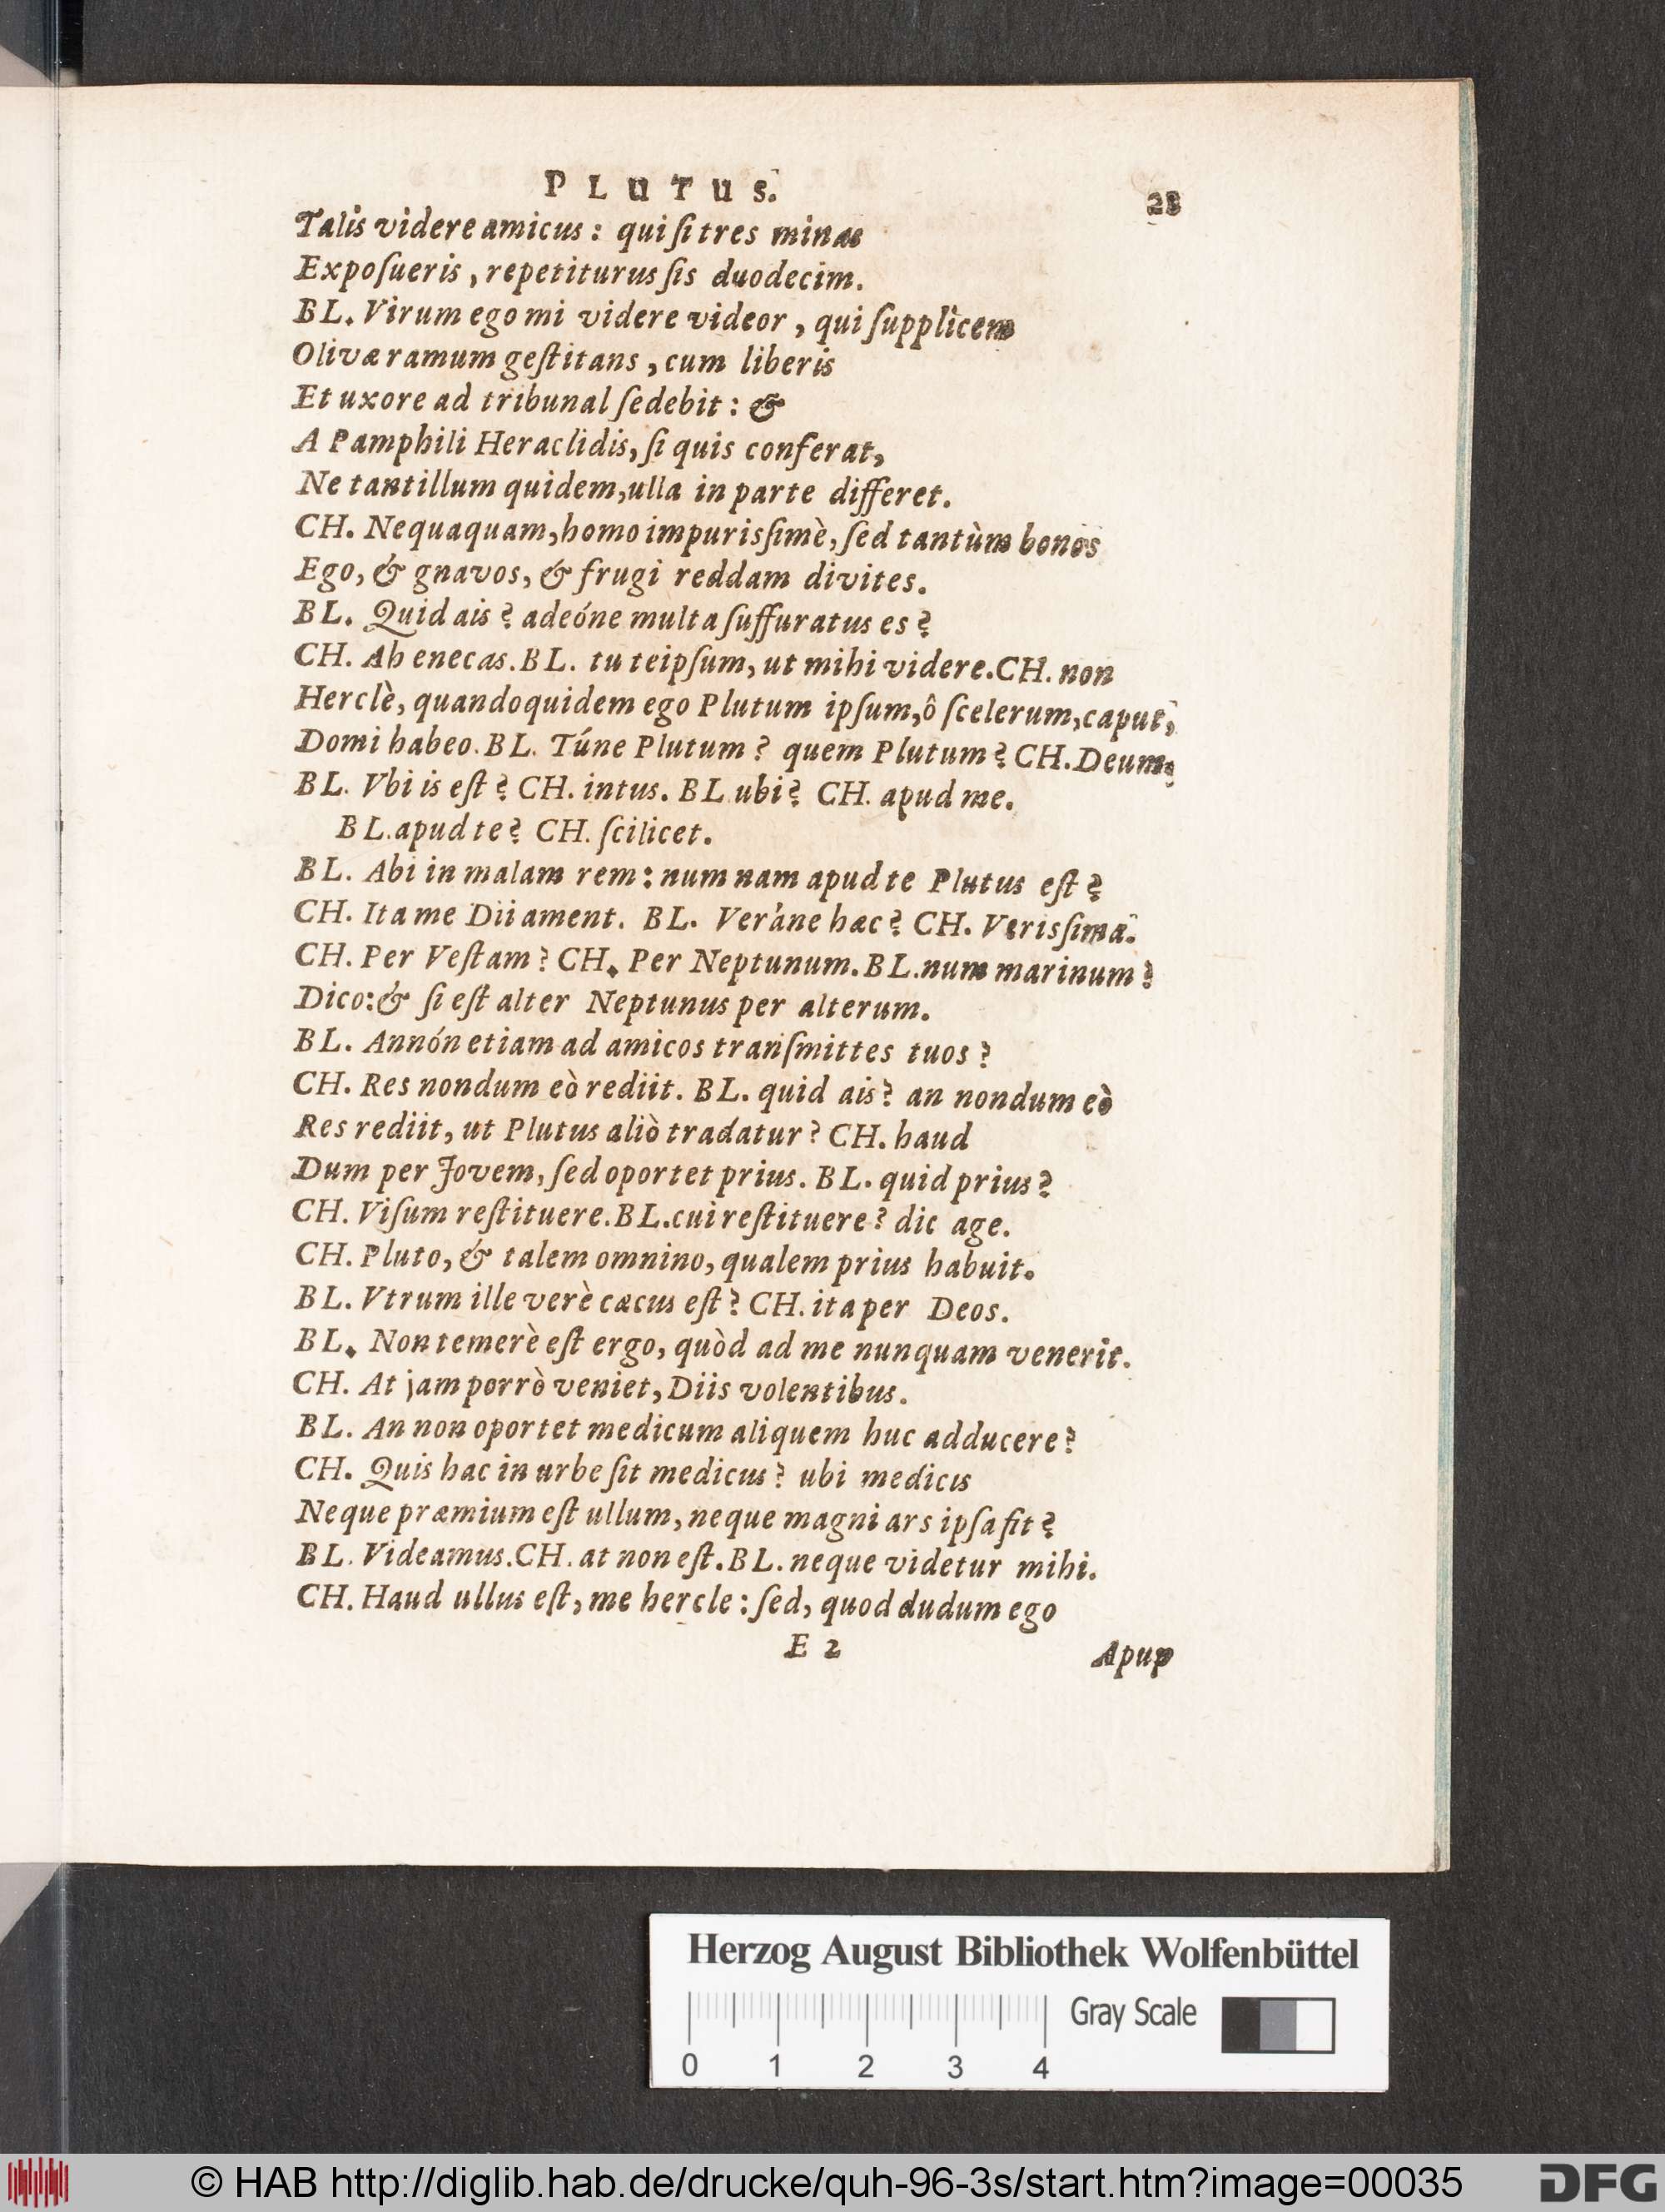 PLUTUS. 28
Talis videre amicus : qui ſi tres minas
Expoſueris , repetiturus ſis duodecim.
BL. Virum ego mi videre videor , qui ſupplicem
Olivæ ramum geſtitans , cum liberis
Et uxore ad tribunal ſedebit : &
A Pamphili Heraclidis, ſi quis conferat,
Ne tantillum quidem, ulla in parte differet.
CH. Nequaquam, homo impurisſimè, ſed tantùm bonos
Ego, & gnavos, & frugi reddam divites.
BL. Quid ais ? adeóne multa ſuffuratus es ?
CH. Ah enecas. BL. tu teipſum, ut mihi videre. CH. non
Herclè, quandoquidem ego Plutum ipſum, ô ſcelerum, caput,
Domi habeo. BL. Túne Plutum ? quem Plutum ? CH. Deum,
BL. Vbi is eſt ? CH. intus. BL ubi ? CH. apud me.
BL. apud te ? CH. ſcilicet.
BL. Abi in malam rem : num nam apud te Plutus eſt ?
CH. Ita me Dii ament. BL. Verάne hæc ? CH. Verisſima.
CH. Per Veſtam ? CH. Per Neptunum. BL. num marinum ?
Dico : & ſi eſt alter Neptunus per alterum.
BL. Annón etiam ad amicos tranſmittes tuos ?
CH. Res nondum eò rediit. BL. quid ais ? an nondum eò
Res rediit, ut Plutus aliò tradatur ? CH. haud
Dum per Jovem, ſed oportet prius. BL. quid prius ?
CH. Viſum reſtituere. BL. cui reſtituere ? dic age.
CH. Pluto, & talem omnino, qualem prius habuit.
BL. Vtrum ille verè cæcus eſt ? CH. ita per Deos.
BL. Non temerè eſt ergo, quòd ad me nunquam venerit.
CH. At jam porrò veniet, Diis volentibus.
BL. An non oportet medicum aliquem huc adducere ?
CH. Quis hac in urbe ſit medicus ? ubi medicis
Neque præmium eſt ullum, neque magni ars ipſa fit ?
BL. Videamus. CH. at non eſt. BL. neque videtur mihi.
CH. Haud ullus eſt, me hercle : ſed, quod dudum ego
E 2 Apup
Herzog August Bibliothek Wolfenbüttel
Gray Scale
0 1 2 3 4
© HAB http://diglib.hab.de/drucke/quh-96-3s/start.htm?image=00035
DFG